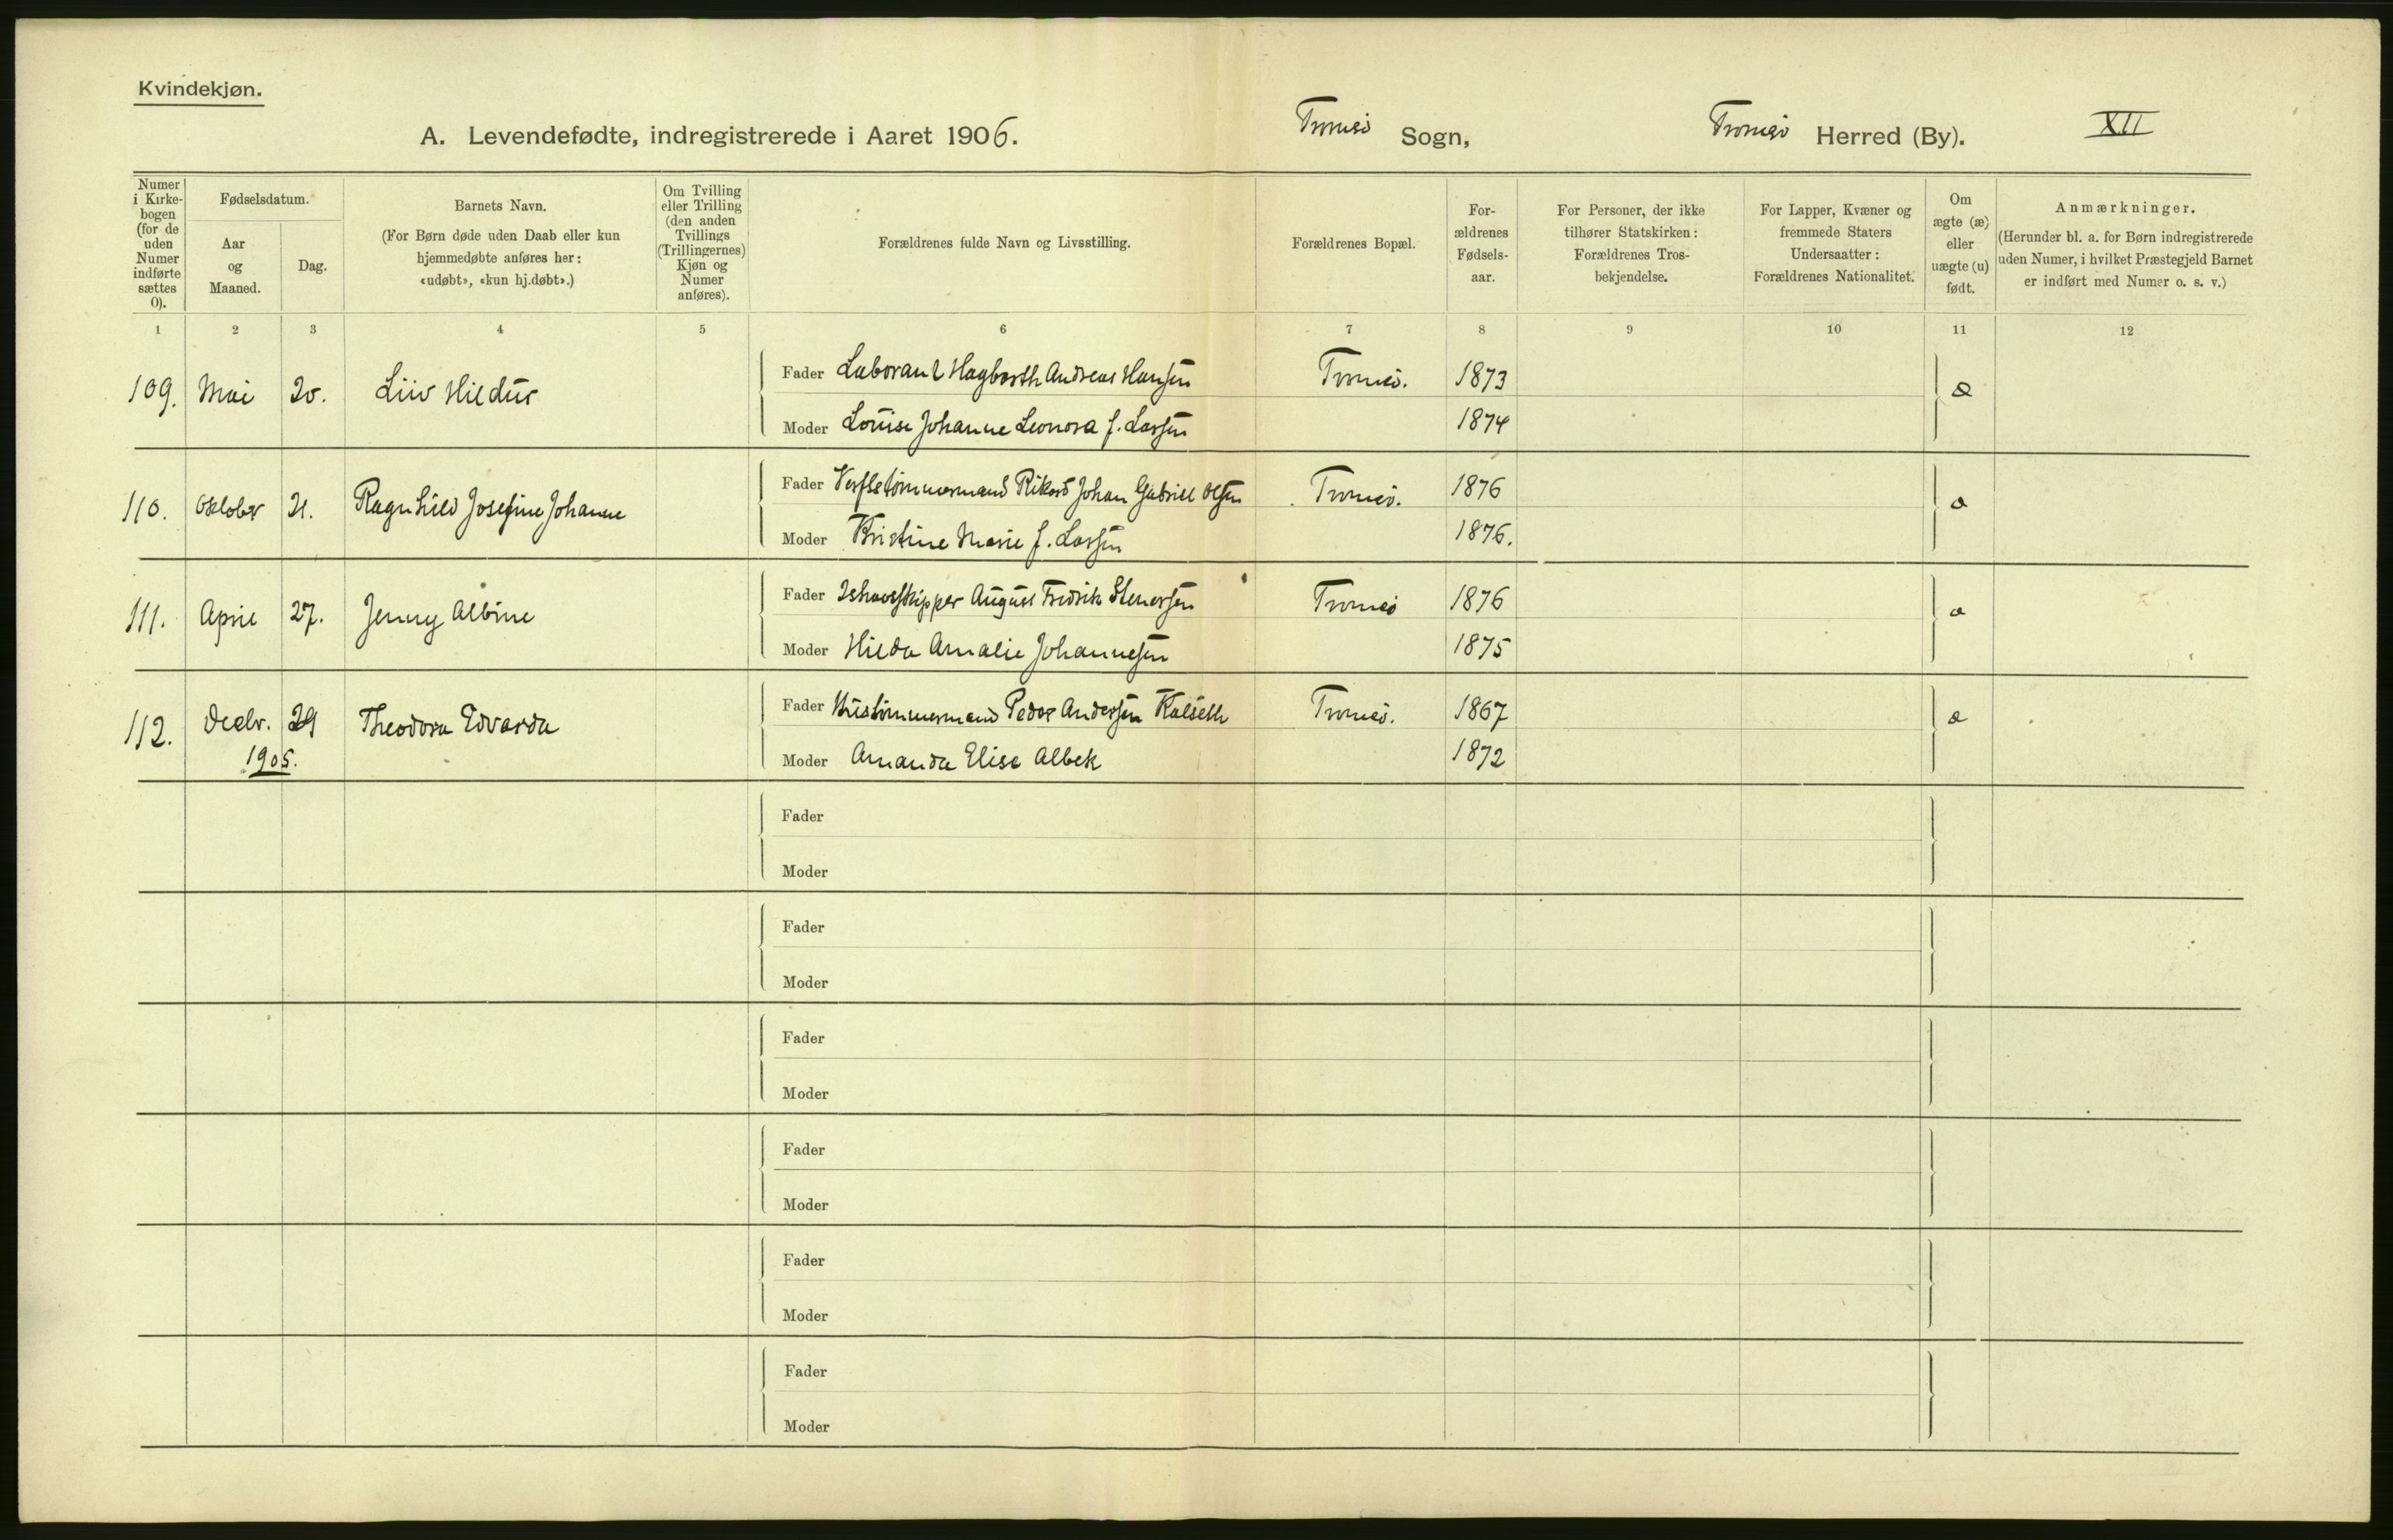 Kvindekjøn.
A. Levendefødte, indregistrerede i Aaret 1906. Tromsø Sogn, Tromsø Herred (By). XII
Numer i Kirkebogen (for de uden Numer indførte sættes 0).
Fødselsdatum.
Aar og Maaned.
Dag.
Barnets Navn.
(For Børn døde uden Daab eller kun hjemmedøbte anføres her: «udøbt», «kun hj.døbt».)
Om Tvilling eller Trilling (den anden Tvillings (Trillingernes) Kjøn og Numer anføres).
Forældrenes fulde Navn og Livsstilling.
Forældrenes Bopæl.
Forældrenes Fødselsaar.
For Personer, der ikke tilhører Statskirken: Forældrenes Trosbekjendelse.
For Lapper, Kvæner og fremmede Staters Undersaatter: Forældrenes Nationalitet.
Om ægte (æ) eller uægte (u) født.
Anmærkninger.
(Herunder bl. a. for Børn indregistrerede uden Numer, i hvilket Præstegjeld Barnet er indført med Numer o. s. v.)
1 2 3 4 5 6 7 8 9 10 11 12
109. Mai 20. Liiv Hildur Fader Laborant Hagbarth Andreas Hansen Tromsø. 1873 æ
Moder Louise Johanne Leonora f. Larsen 1874
110. Oktober 21. Ragnhild Josefine Johanne Fader Verftstømmermand Rikard Johan Gabriel Olsen Tromsø. 1876 æ
Moder Kristine Marie f. Larsen 1876.
111. April 27. Jenny Albine Fader Ishavsskipper August Fredrik Stenersen Tromsø 1876 æ
Moder Hilda Amalie Johannesen 1875
112. Decbr. 29 Theodora Edvarda Fader Hustømmermand Peder Andersen Kalseth Tromsø. 1867 æ
1905. Moder Amanda Elise Albek 1872
Fader
Moder
Fader
Moder
Fader
Moder
Fader
Moder
Fader
Moder
Fader
Moder